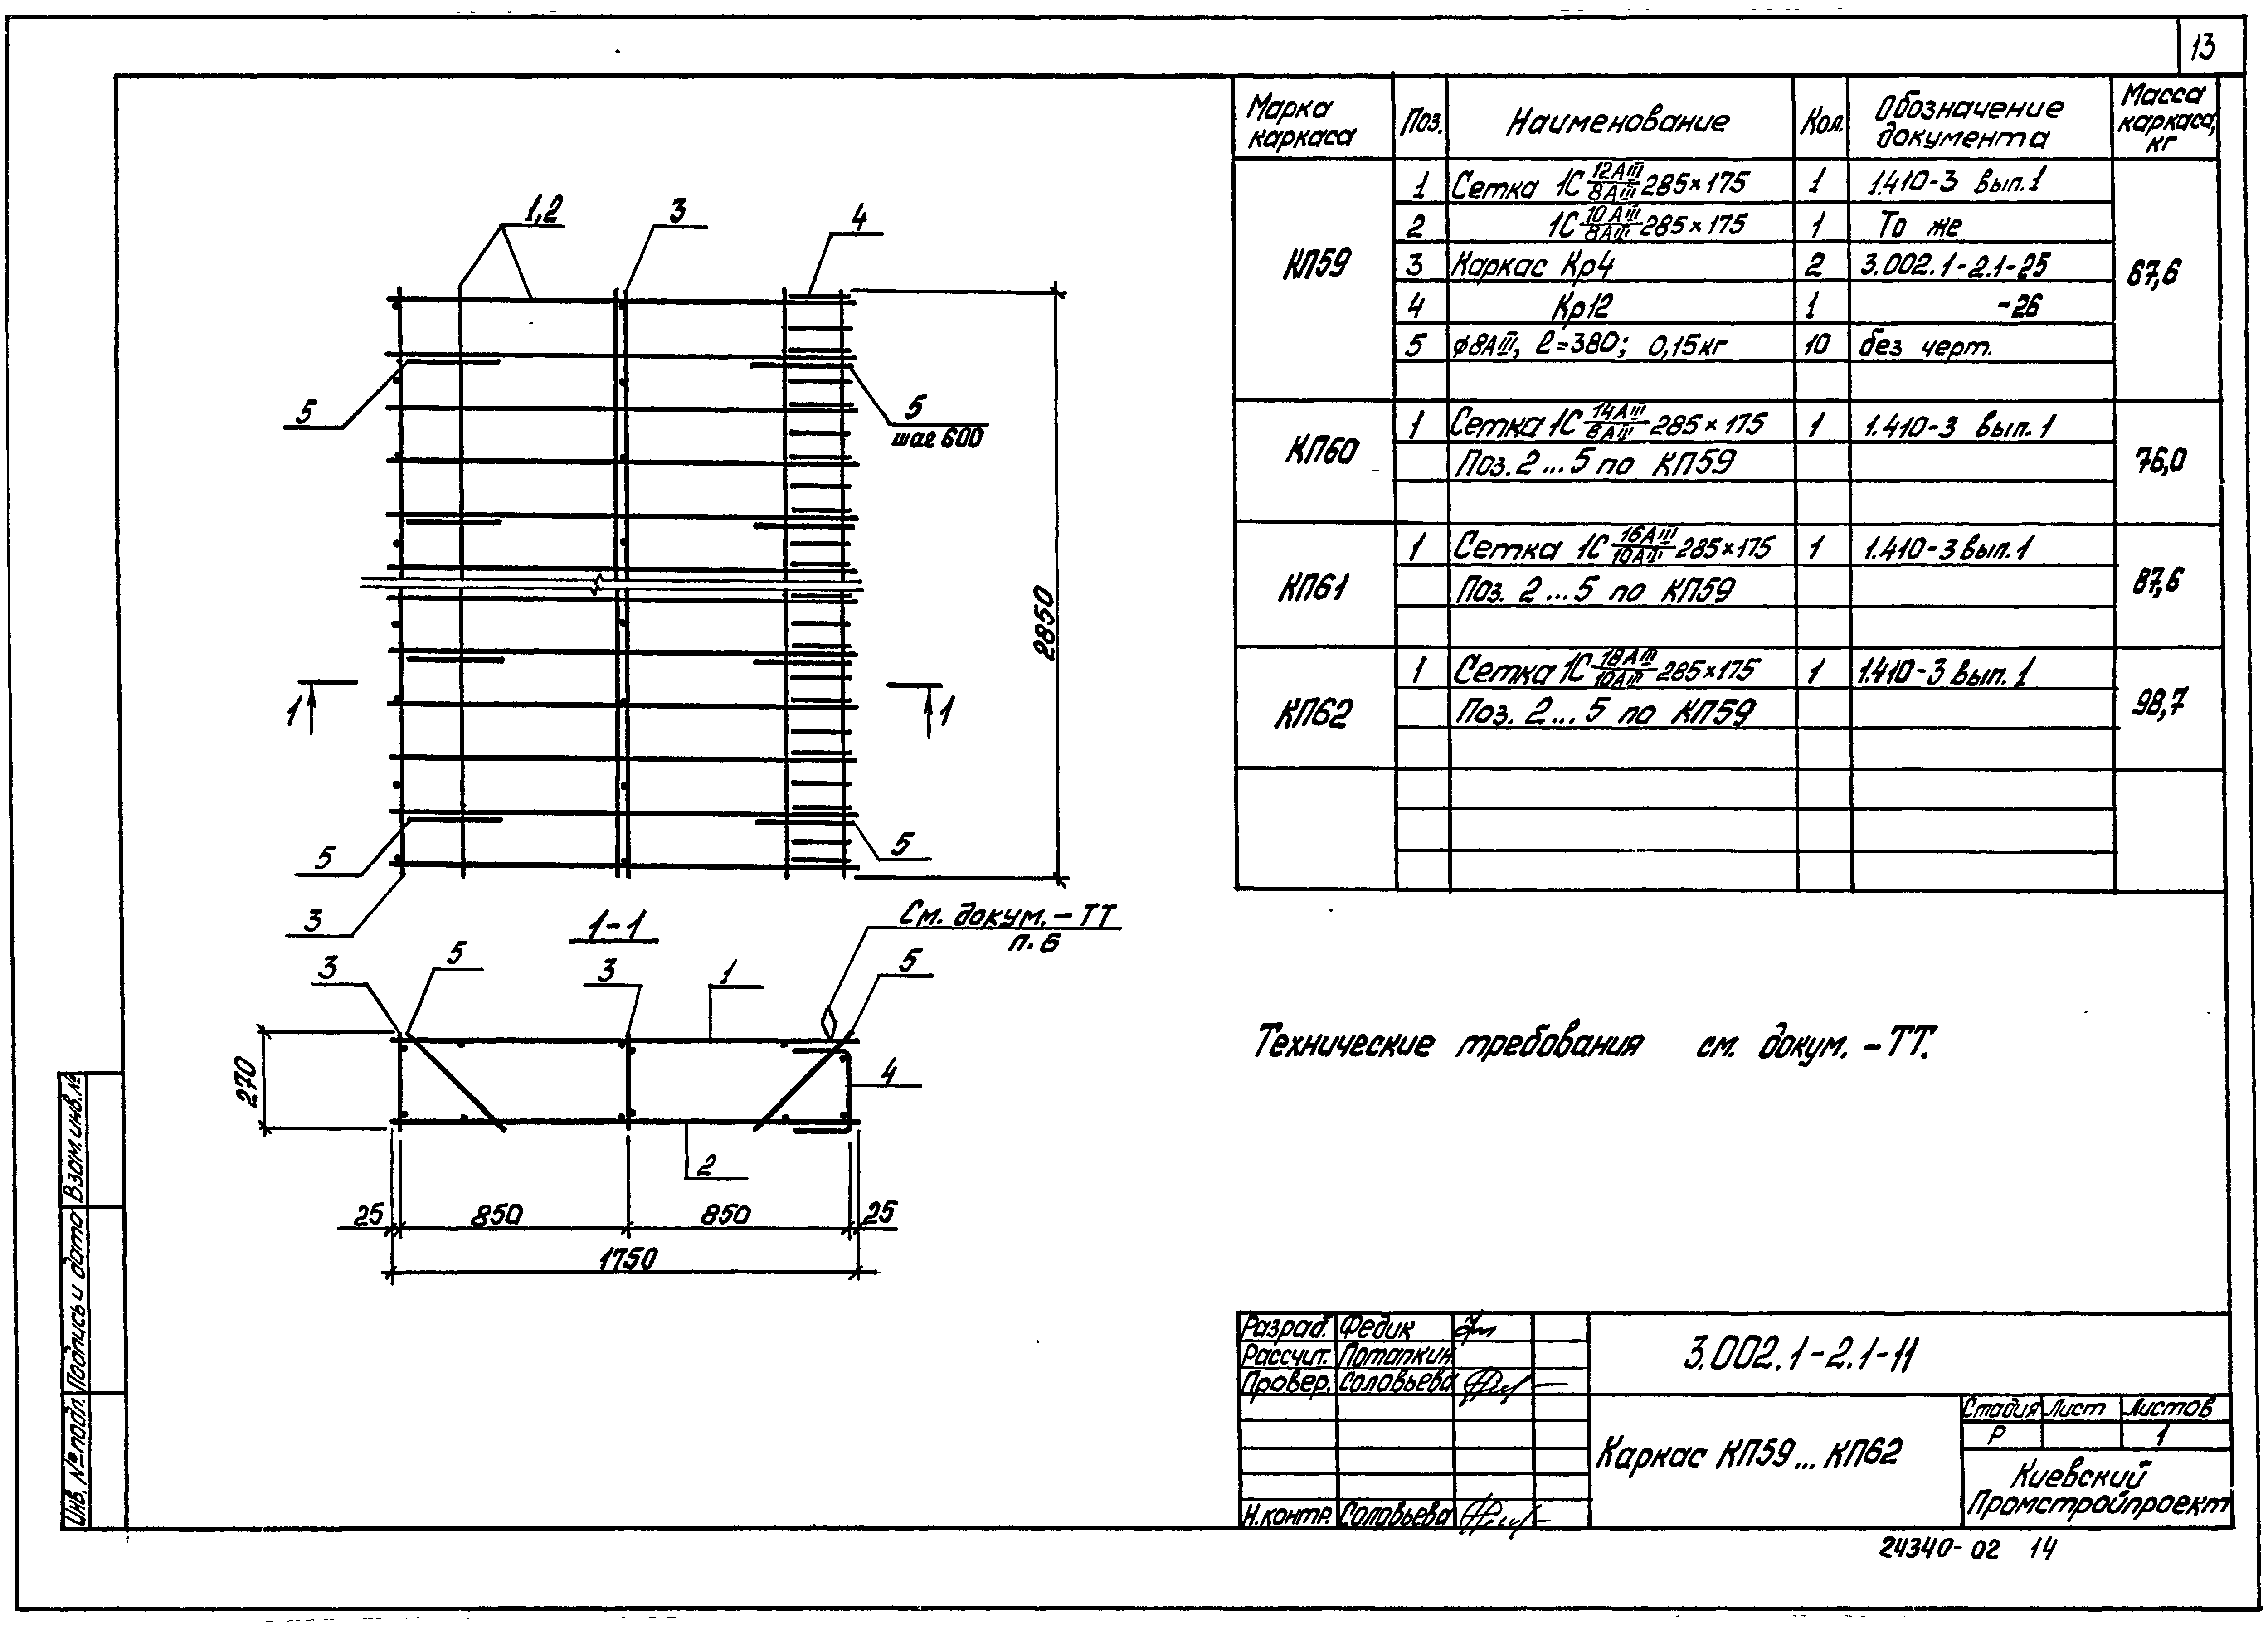 13
Марка каркаса
Поз.
Наименование
Кол.
Обозначение документа
Масса каркаса, кг
КП59
1 Сетка 1С 12АIII/8АIII 285×175 1 1.410-3 вып.1
2 1С 10АIII/8АIII 285×175 1 То же
3 Каркас Кр4 2 3.002.1-2.1-25
4 Кр12 1 -26
5 ф8АIII, ℓ=380; 0,15кг 10 без черт.
67,6
КП60
1 Сетка 1С 14АIII/8АIII 285×175 1 1.410-3 вып.1
Поз. 2...5 по КП59
76,0
КП61
1 Сетка 1С 16АIII/10АIII 285×175 1 1.410-3 вып.1
Поз. 2...5 по КП59
87,6
КП62
1 Сетка 1С 18АIII/10АIII 285×175 1 1.410-3 вып.1
Поз. 2...5 по КП59
98,7
1,2
3
4
5
5
шаг 600
2850
1
1
5
5
3
1-1
См. докум.-ТТ
п. 6
3
5
3
1
5
4
270
2
25
850
850
25
1750
Технические требования см. докум. -ТТ.
Взам. инв.№
Подпись и дата
Инв. № подл.
Разраб. Федик
Рассчит. Потапкин
Провер. Соловьева
Н.контр. Соловьева
3.002.1-2.1-11
Каркас КП59...КП62
Стадия Лист Листов
Р 1
Киевский
Промстройпроект
24340-02 14